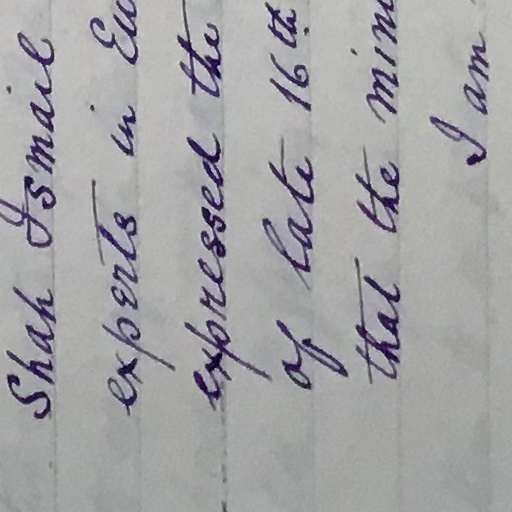 Shah Ismail
experts in Eu
expressed the
of late 16th
that the mini
I am